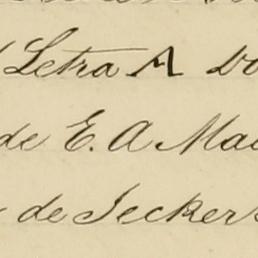 Letra A
de E. A
de Jecker